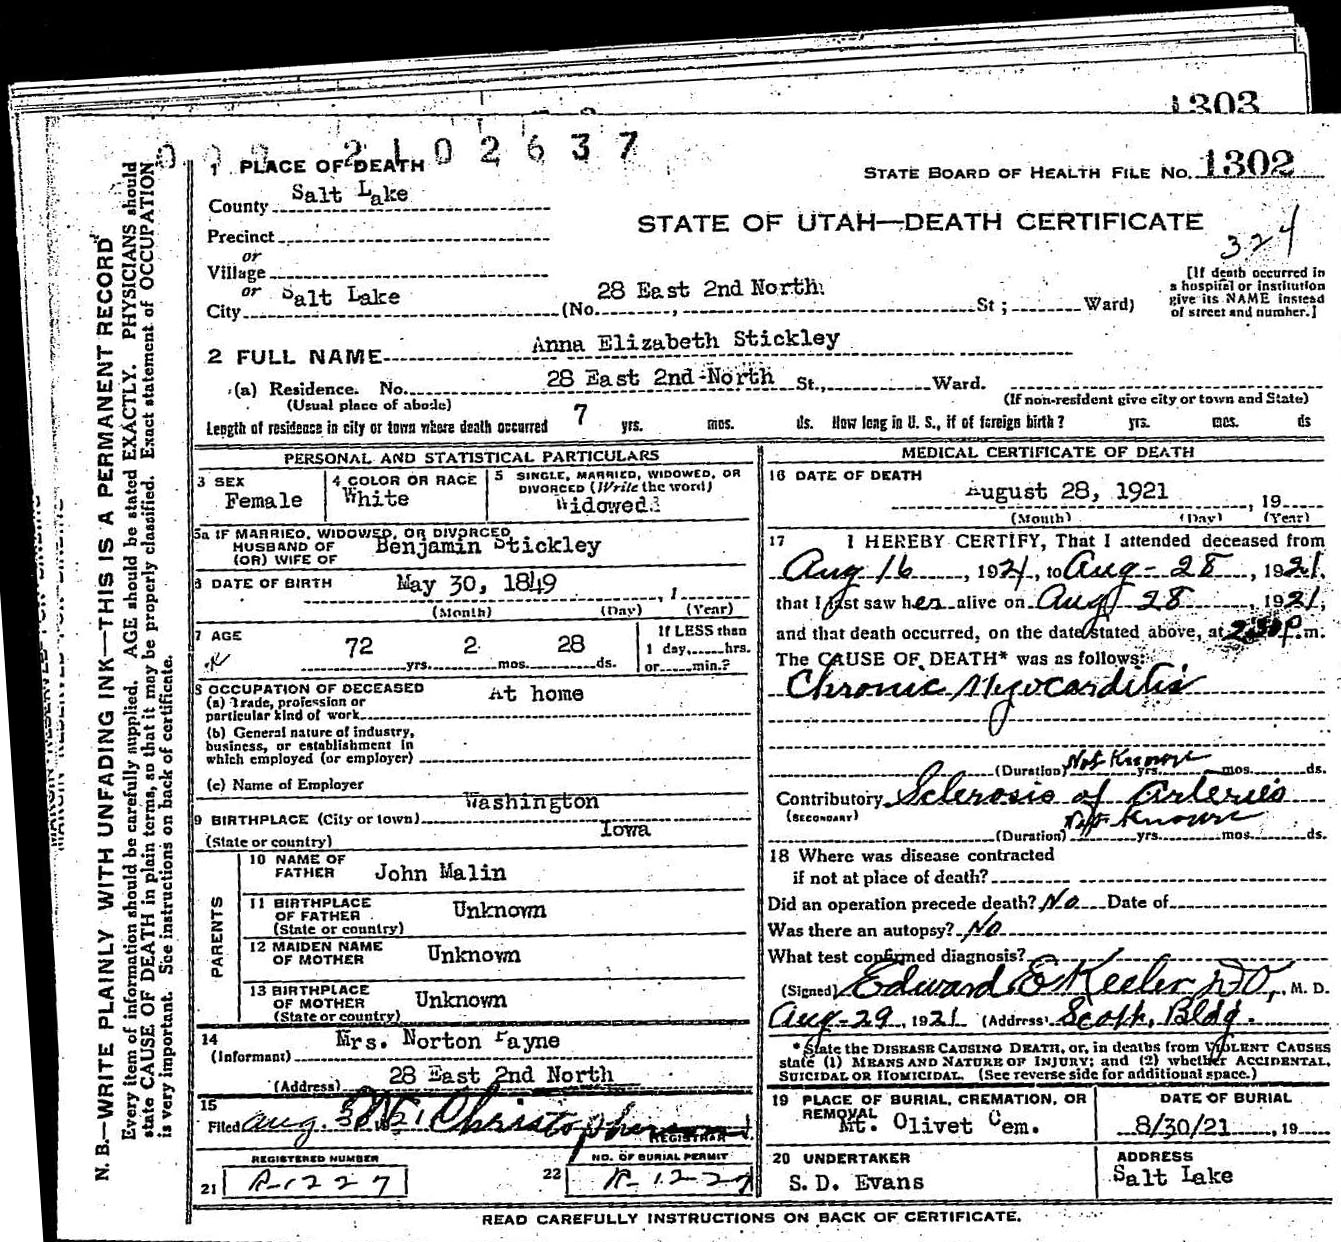 1303
2102637
1 PLACE OF DEATH
STATE BOARD OF HEALTH FILE NO. 1302
County Salt Lake
STATE OF UTAH—DEATH CERTIFICATE
324
Precinct
or
Village
or
City Salt Lake (No. 28 East 2nd North St; Ward)
[If death occurred in
a hospital or institution
give its NAME instead
of street and number.]
2 FULL NAME Anna Elizabeth Stickley
(a) Residence. No. 28 East 2nd North St., Ward.
(Usual place of abode) (If non-resident give city or town and State)
Length of residence in city or town where death occurred 7 yrs. mos. ds. How long in U. S., if of foreign birth? yrs. mos. ds
PERSONAL AND STATISTICAL PARTICULARS
3 SEX
Female
4 COLOR OR RACE
White
5 SINGLE, MARRIED, WIDOWED, OR
DIVORCED (Write the word)
Widowed
5a IF MARRIED, WIDOWED, OR DIVORCED
HUSBAND OF
(OR) WIFE OF Benjamin Stickley
6 DATE OF BIRTH May 30, 1849 , 1
(Month) (Day) (Year)
7 AGE
72 yrs. 2 mos. 28 ds.
If LESS than
1 day, hrs.
or min.?
8 OCCUPATION OF DECEASED At home
(a) Trade, profession or
particular kind of work
(b) General nature of industry,
business, or establishment in
which employed (or employer)
(c) Name of Employer
9 BIRTHPLACE (City or town) Washington
(State or country) Iowa
PARENTS
10 NAME OF
FATHER John Malin
11 BIRTHPLACE
OF FATHER Unknown
(State or country)
12 MAIDEN NAME
OF MOTHER Unknown
13 BIRTHPLACE
OF MOTHER Unknown
(State or country)
14
(Informant) Mrs. Norton Payne
(Address) 28 East 2nd North
15
Filed Aug. 30 21 Christopherson
REGISTRAR
REGISTERED NUMBER
21 P-1227
NO. OF BURIAL PERMIT
22 P-1227
MEDICAL CERTIFICATE OF DEATH
16 DATE OF DEATH
August 28, 1921 , 19
(Month) (Day) (Year)
17 I HEREBY CERTIFY, That I attended deceased from
Aug 16, 1921, to Aug-28, 1921.
that I last saw her alive on Aug 28, 1921,
and that death occurred, on the date stated above, at P.m.
The CAUSE OF DEATH* was as follows:
Chronic Myocarditis
(Duration) Not Known yrs. mos. ds.
Contributory Sclerosis of Arteries
(SECONDARY)
(Duration) Not Known yrs. mos. ds.
18 Where was disease contracted
if not at place of death?
Did an operation precede death? No Date of
Was there an autopsy? No
What test confirmed diagnosis?
(Signed) Edward E Keeler DO, M. D.
Aug-29, 1921 (Address) Scott, Bldg.
*State the DISEASE CAUSING DEATH, or, in deaths from VIOLENT CAUSES
state (1) MEANS AND NATURE OF INJURY; and (2) whether ACCIDENTAL,
SUICIDAL OR HOMICIDAL. (See reverse side for additional space.)
19 PLACE OF BURIAL, CREMATION, OR
REMOVAL
Mt. Olivet Cem.
DATE OF BURIAL
8/30/21, 19
20 UNDERTAKER
S.D. Evans
ADDRESS
Salt Lake
READ CAREFULLY INSTRUCTIONS ON BACK OF CERTIFICATE.
N. B.—WRITE PLAINLY WITH UNFADING INK—THIS IS A PERMANENT RECORD
Every item of information should be carefully supplied. AGE should be stated EXACTLY. PHYSICIANS should
state CAUSE OF DEATH in plain terms, so that it may be properly classified. Exact statement of OCCUPATION
is very important. See instructions on back of certificate.